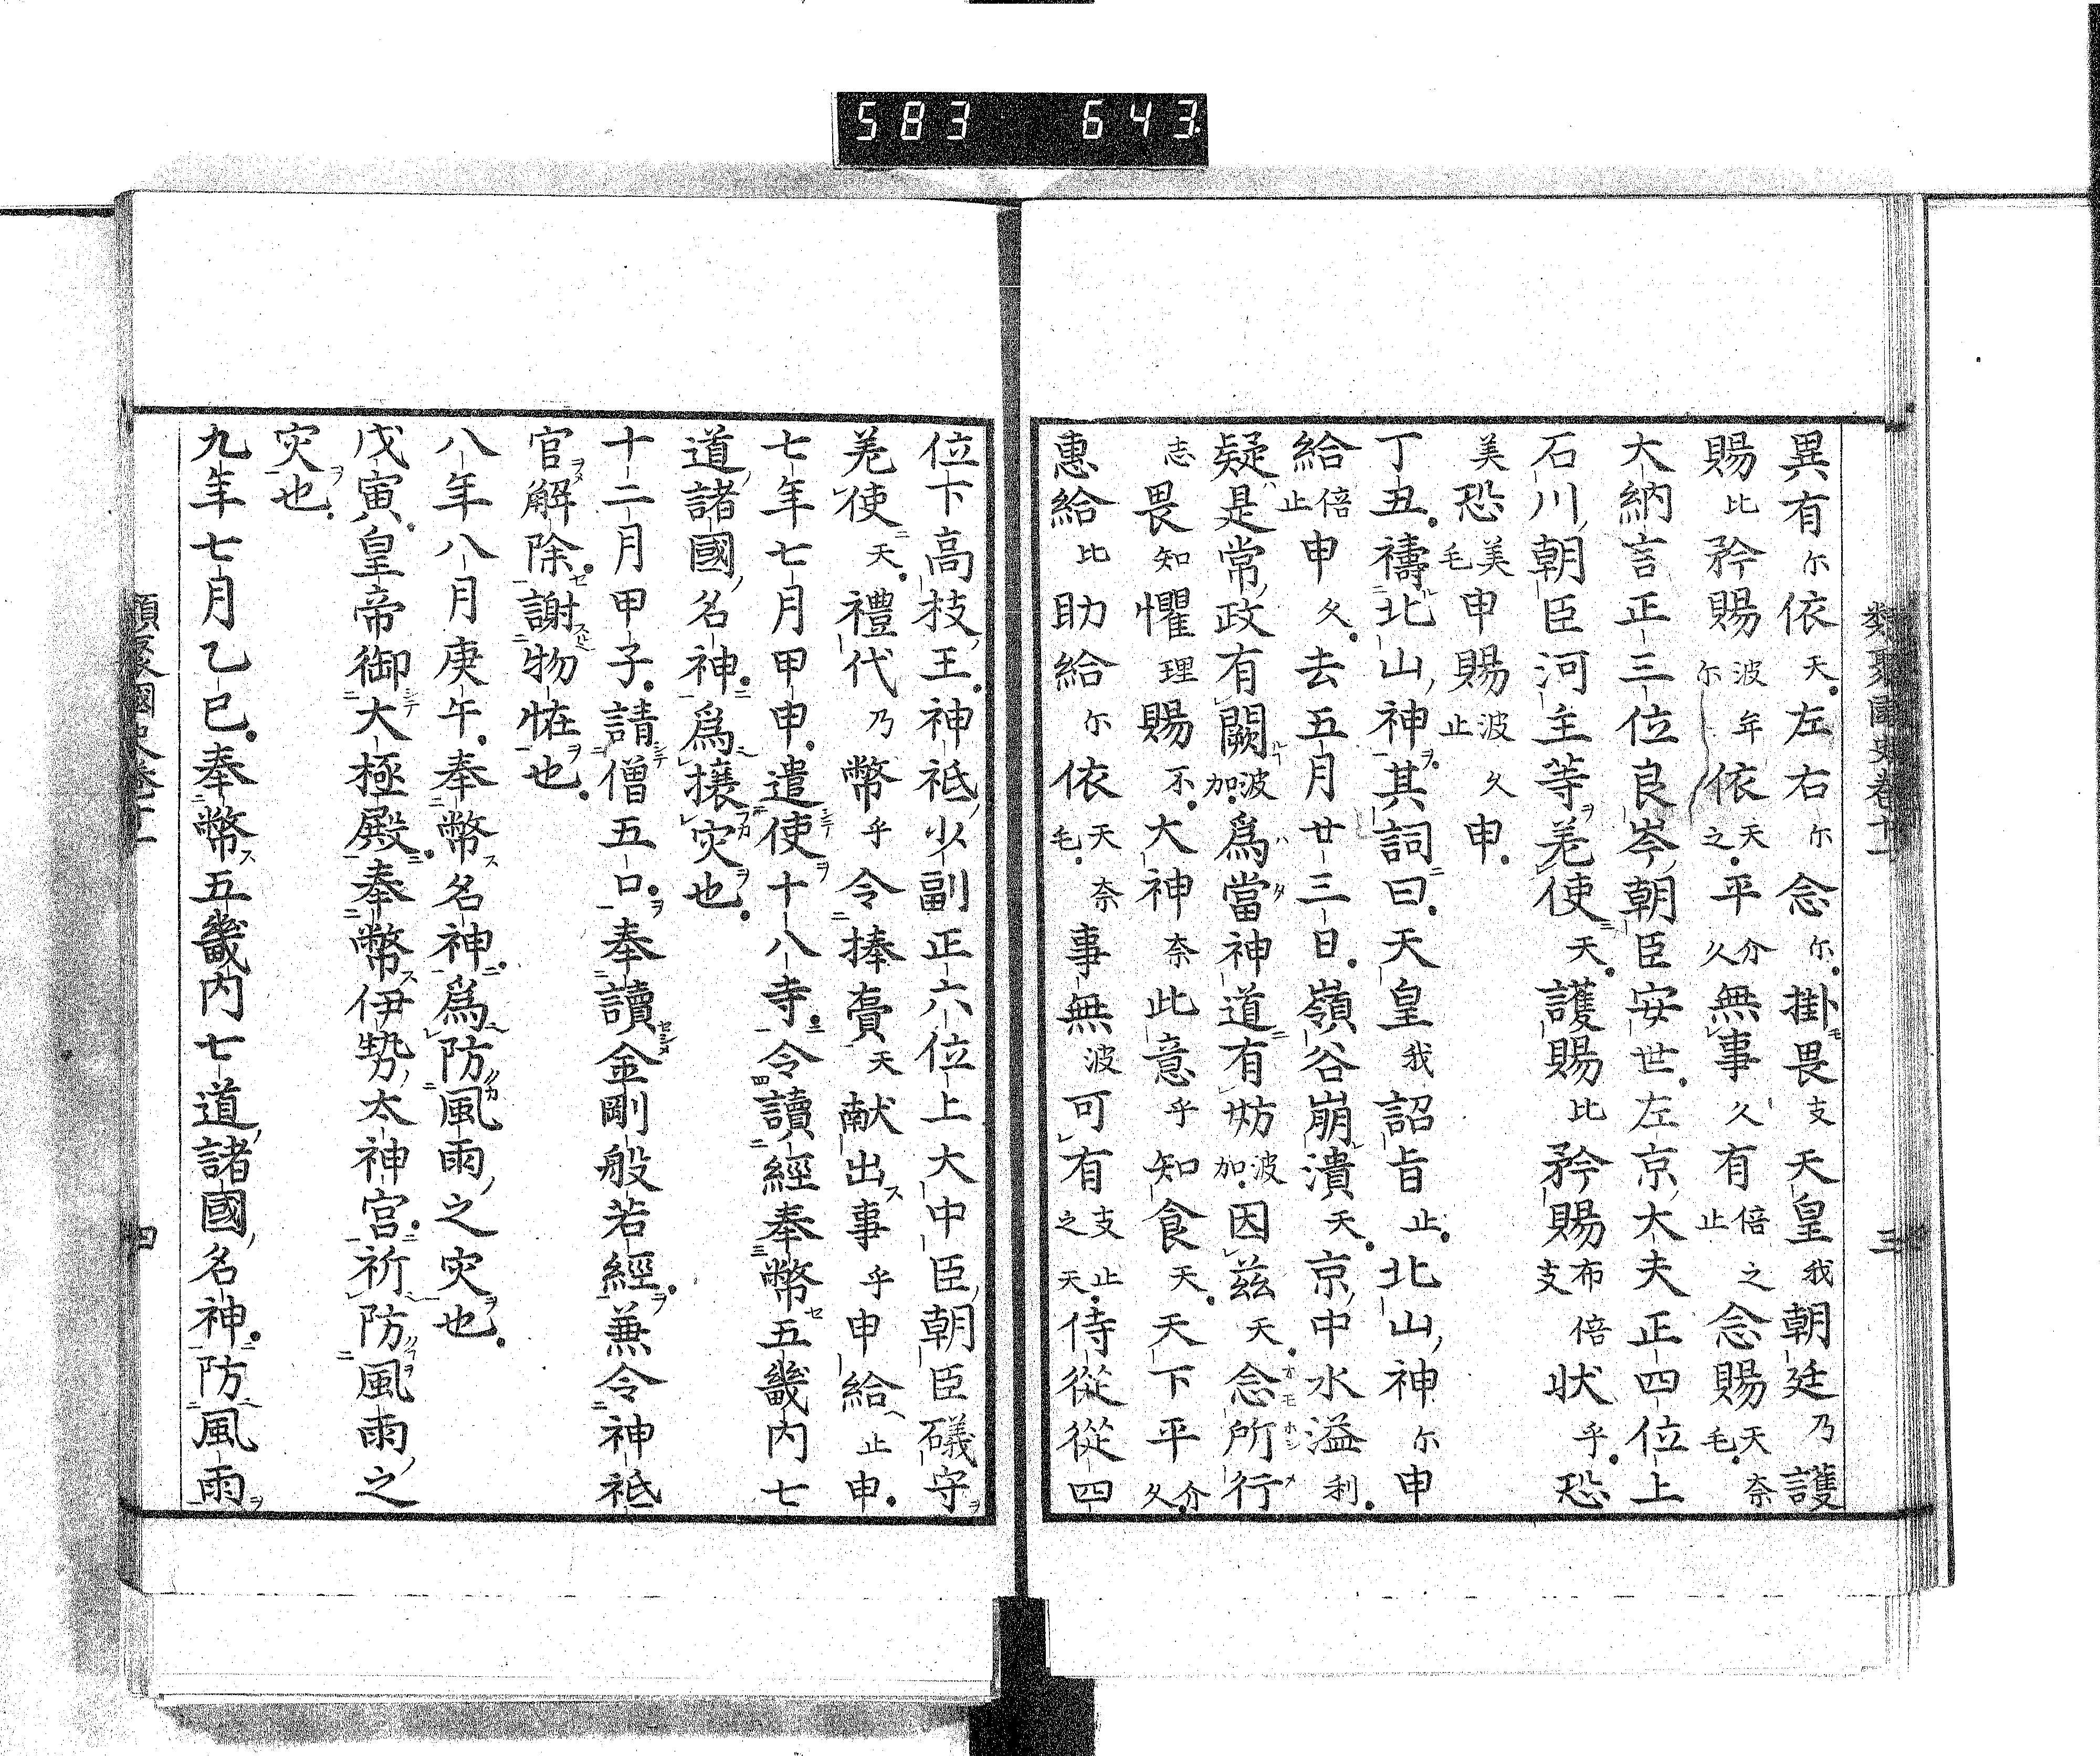 583 643
類聚國史卷十一 三
異有尓依天左右尓念尓掛畏支天皇我朝廷乃護
賜比矜賜波牟尓依天之平介久無事久有倍止之念賜天毛奈
大納言正三位良岑朝臣安世左京大夫正四位上
石川朝臣河主等差使天護賜比矜賜布支倍状乎恐
美恐美毛申賜波止久申
丁丑禱北山神其詞曰天皇我詔旨止北山神尓申
給倍止申久去五月廿三日嶺谷崩潰天京中水溢利
疑是常政有闕波加爲當神道有妨波加因茲天念所行
志畏知懼理賜不大神奈此意乎知食天天下平介久
惠給比助給尓依天毛奈事無波可有支之止天侍從從四
位下高枝王神祇少副正六位上大中臣朝臣礒守
差使天禮代乃幣乎令捧賷天献出事乎申給止申
七年七月甲申遣使十八寺令讀經奉幣五畿内七
道諸國名神爲攘灾也
十二月甲子請僧五口奉讀金剛般若經兼令神祇
官解除謝物恠也
八年八月庚午奉幣名神爲防風雨之灾也
戊寅皇帝御大極殿奉幣伊勢太神宮祈防風雨之
灾也
九年七月乙巳奉幣五畿内七道諸國名神防風雨
類聚國史卷十一 四